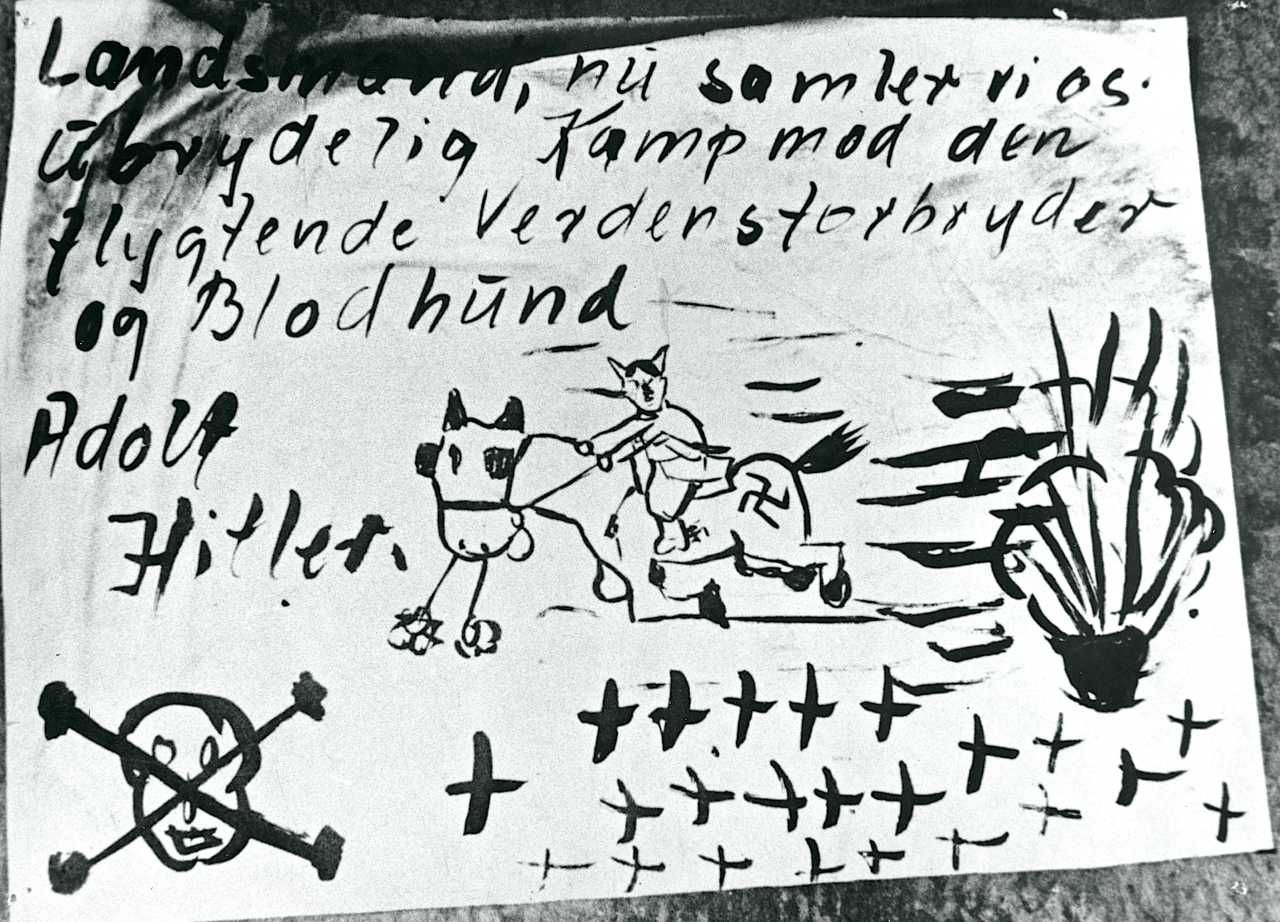 Landsmand, nū samler vi os.
Ūbrydelig Kamp mod den
flygtende Verdensforbryder
og Blodhūnd
Adolf
Hitler.